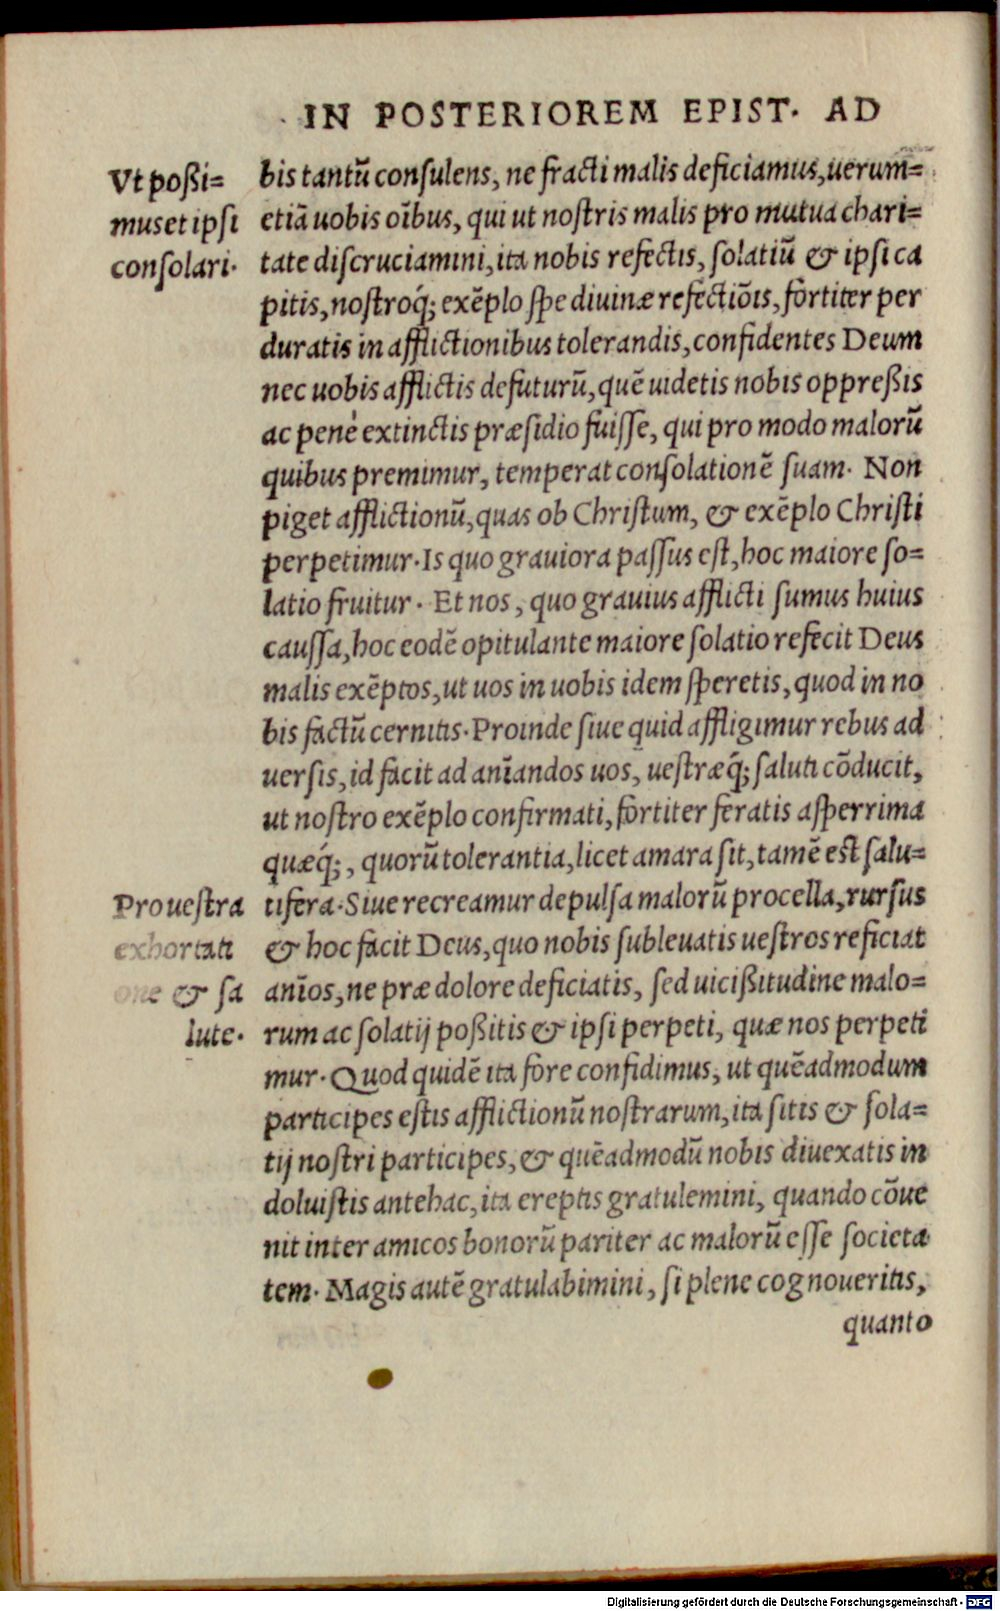 IN POSTERIOREM EPIST. AD
Vt poßi=
mus et ipsi
consolari.
bis tantũ consulens, ne fracti malis deficiamus, uerum=
etiã uobis oĩbus, qui ut nostris malis pro mutua chari=
tate discruciamini, ita nobis refectis, solatiũ & ipsi ca
pitis, nostroq́; exẽplo spe diuinæ refectiõis, fortiter per
duratis in afflictionibus tolerandis, confidentes Deum
nec uobis afflictis defuturũ, quẽ uidetis nobis oppreßis
ac penè extinctis præsidio fuisse, qui pro modo malorũ
quibus premimur, temperat consolationẽ suam. Non
piget afflictionũ, quas ob Christum, & exẽplo Christi
perpetimur. Is quo grauiora passus est, hoc maiore so=
latio fruitur. Et nos, quo grauius afflicti sumus huius
caussa, hoc eodẽ opitulante maiore solatio refecit Deus
malis exẽptos, ut uos in uobis idem speretis, quod in no
bis factũ cernitis. Proinde siue quid affligimur rebus ad
uersis, id facit ad anĩandos uos, uestræq́; saluti cõducit,
ut nostro exẽplo confirmati, fortiter feratis asperrima
quæq́;, quorũ tolerantia, licet amara sit, tamẽ est salu=
Pro uestra
exhortati
one & sa
lute.
tifera. Siue recreamur depulsa malorũ procella, rursus
& hoc facit Deus, quo nobis subleuatis uestros reficiat
anĩos, ne præ dolore deficiatis, sed uicißitudine malo=
rum ac solatij poßitis & ipsi perpeti, quæ nos perpeti
mur. Quod quidẽ ita fore confidimus, ut quẽadmodum
participes estis afflictionũ nostrarum, ita sitis & sola=
tij nostri participes, & quẽadmodũ nobis diuexatis in
doluistis antehac, ita ereptis gratulemini, quando cõue
nit inter amicos bonorũ pariter ac malorũ esse societa
tem. Magis autẽ gratulabimini, si plene cognoueritis,
quanto
Digitalisierung gefördert durch die Deutsche Forschungsgemeinschaft - DFG